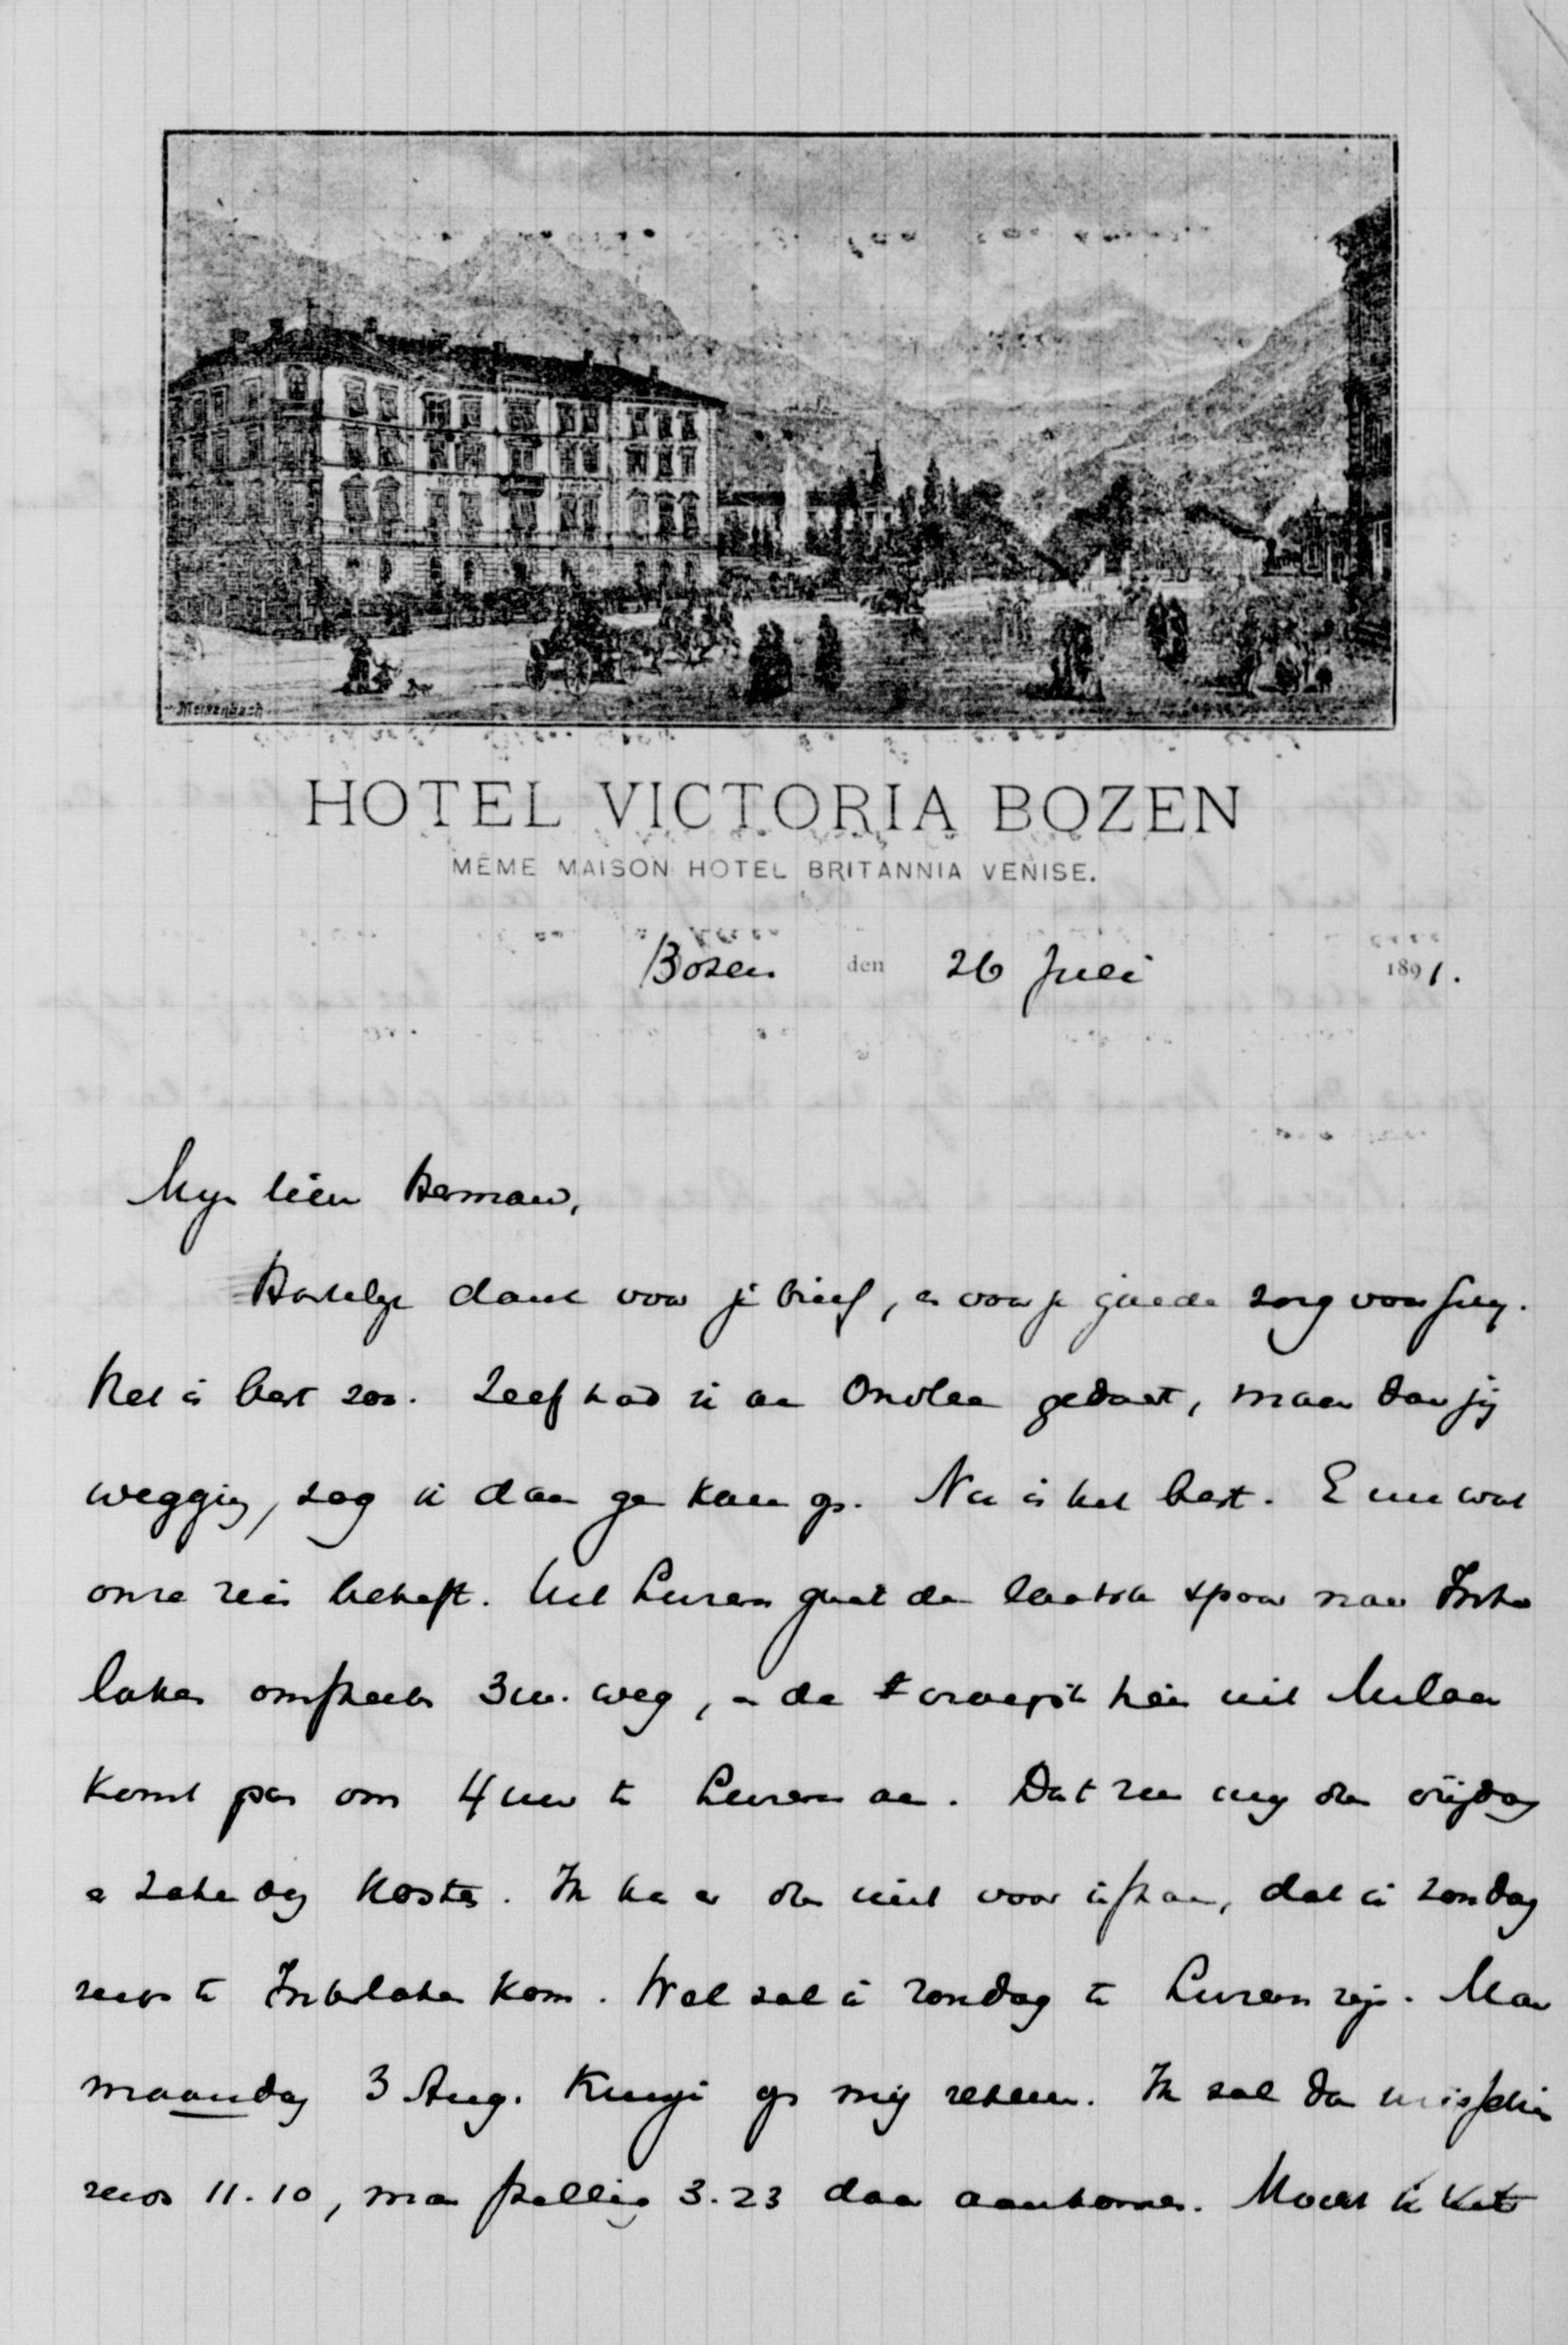 Meisenbach
HOTEL
HOTEL VICTORIA BOZEN
MÊME MAISON HOTEL BRITANNIA VENISE.
Bozen den 26 Juli 1891.
Mijn lieve Herman,
Hartelijk dank voor je brief, en voor je goede zorg voor
Het is best zoo. Zelf had ik aan gedacht, maar daar jij
wegging, zag ik daar geen kans op. Nu is het best. En nu wat
onze reis betreft. Uit Luzern gaat de laatste spoor naar Inter
laken omstreeks 3 uur weg, en de vroegste trein uit Milaan
komt pas om 4 uur te Luzern aan. Dat zou mij dan vrijdag
en zaterdag kosten. Ik kan er dus niet voor instaan, dat ik zondag
reeds te Interlaken kom. Wel zal ik zondag te Luzern zijn. Maar
maandag 3 Aug. kunt ge op mij rekenen. Ik zal dan misschien
reeds 11.10, maar stellig 3.23 daar aankomen. Mocht ik het